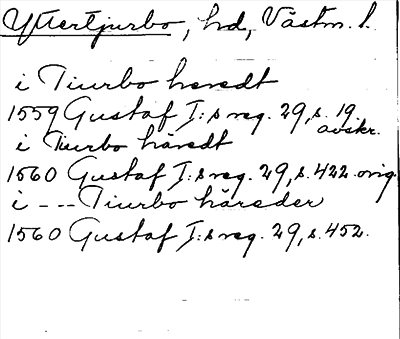 Yttertjurbo, hd, Västm. l.
i Tiurbo heredt
1559 Gustaf I:s reg. 29, s. 19 avskr.
i Tiurbo häredt
1560 Gustaf I:s reg. 29, s. 422 orig.
i - - - Tiurbo häreder
1560 Gustaf I:s reg. 29, s. 452.